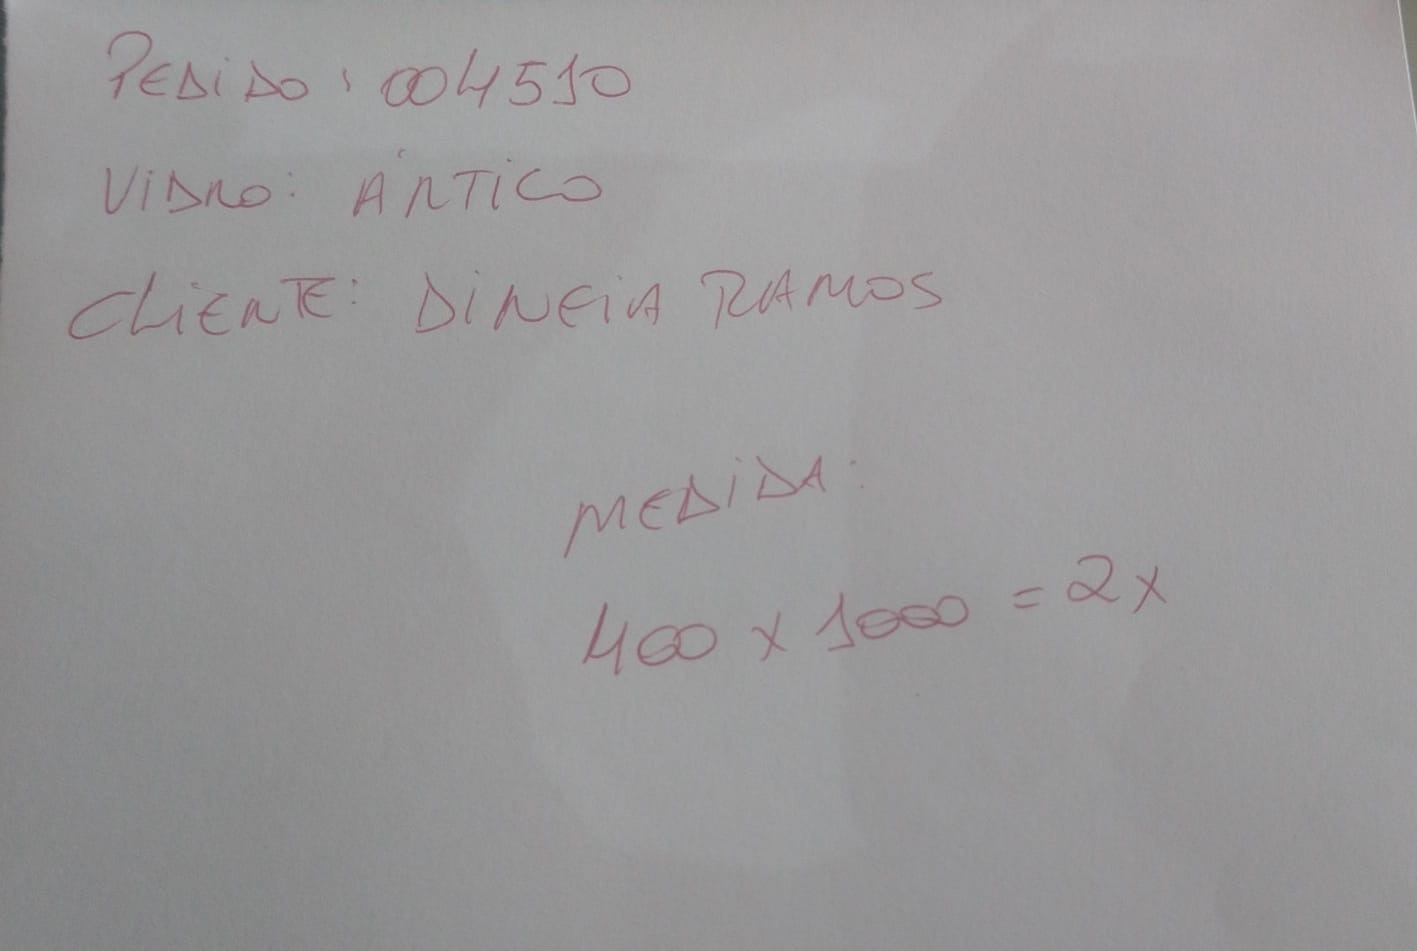 PEDIDO: 004510
VIDRO: ÁRTICO
CLIENTE: DINEIA RAMOS
MEDIDA:
400 x 1000 = 2x